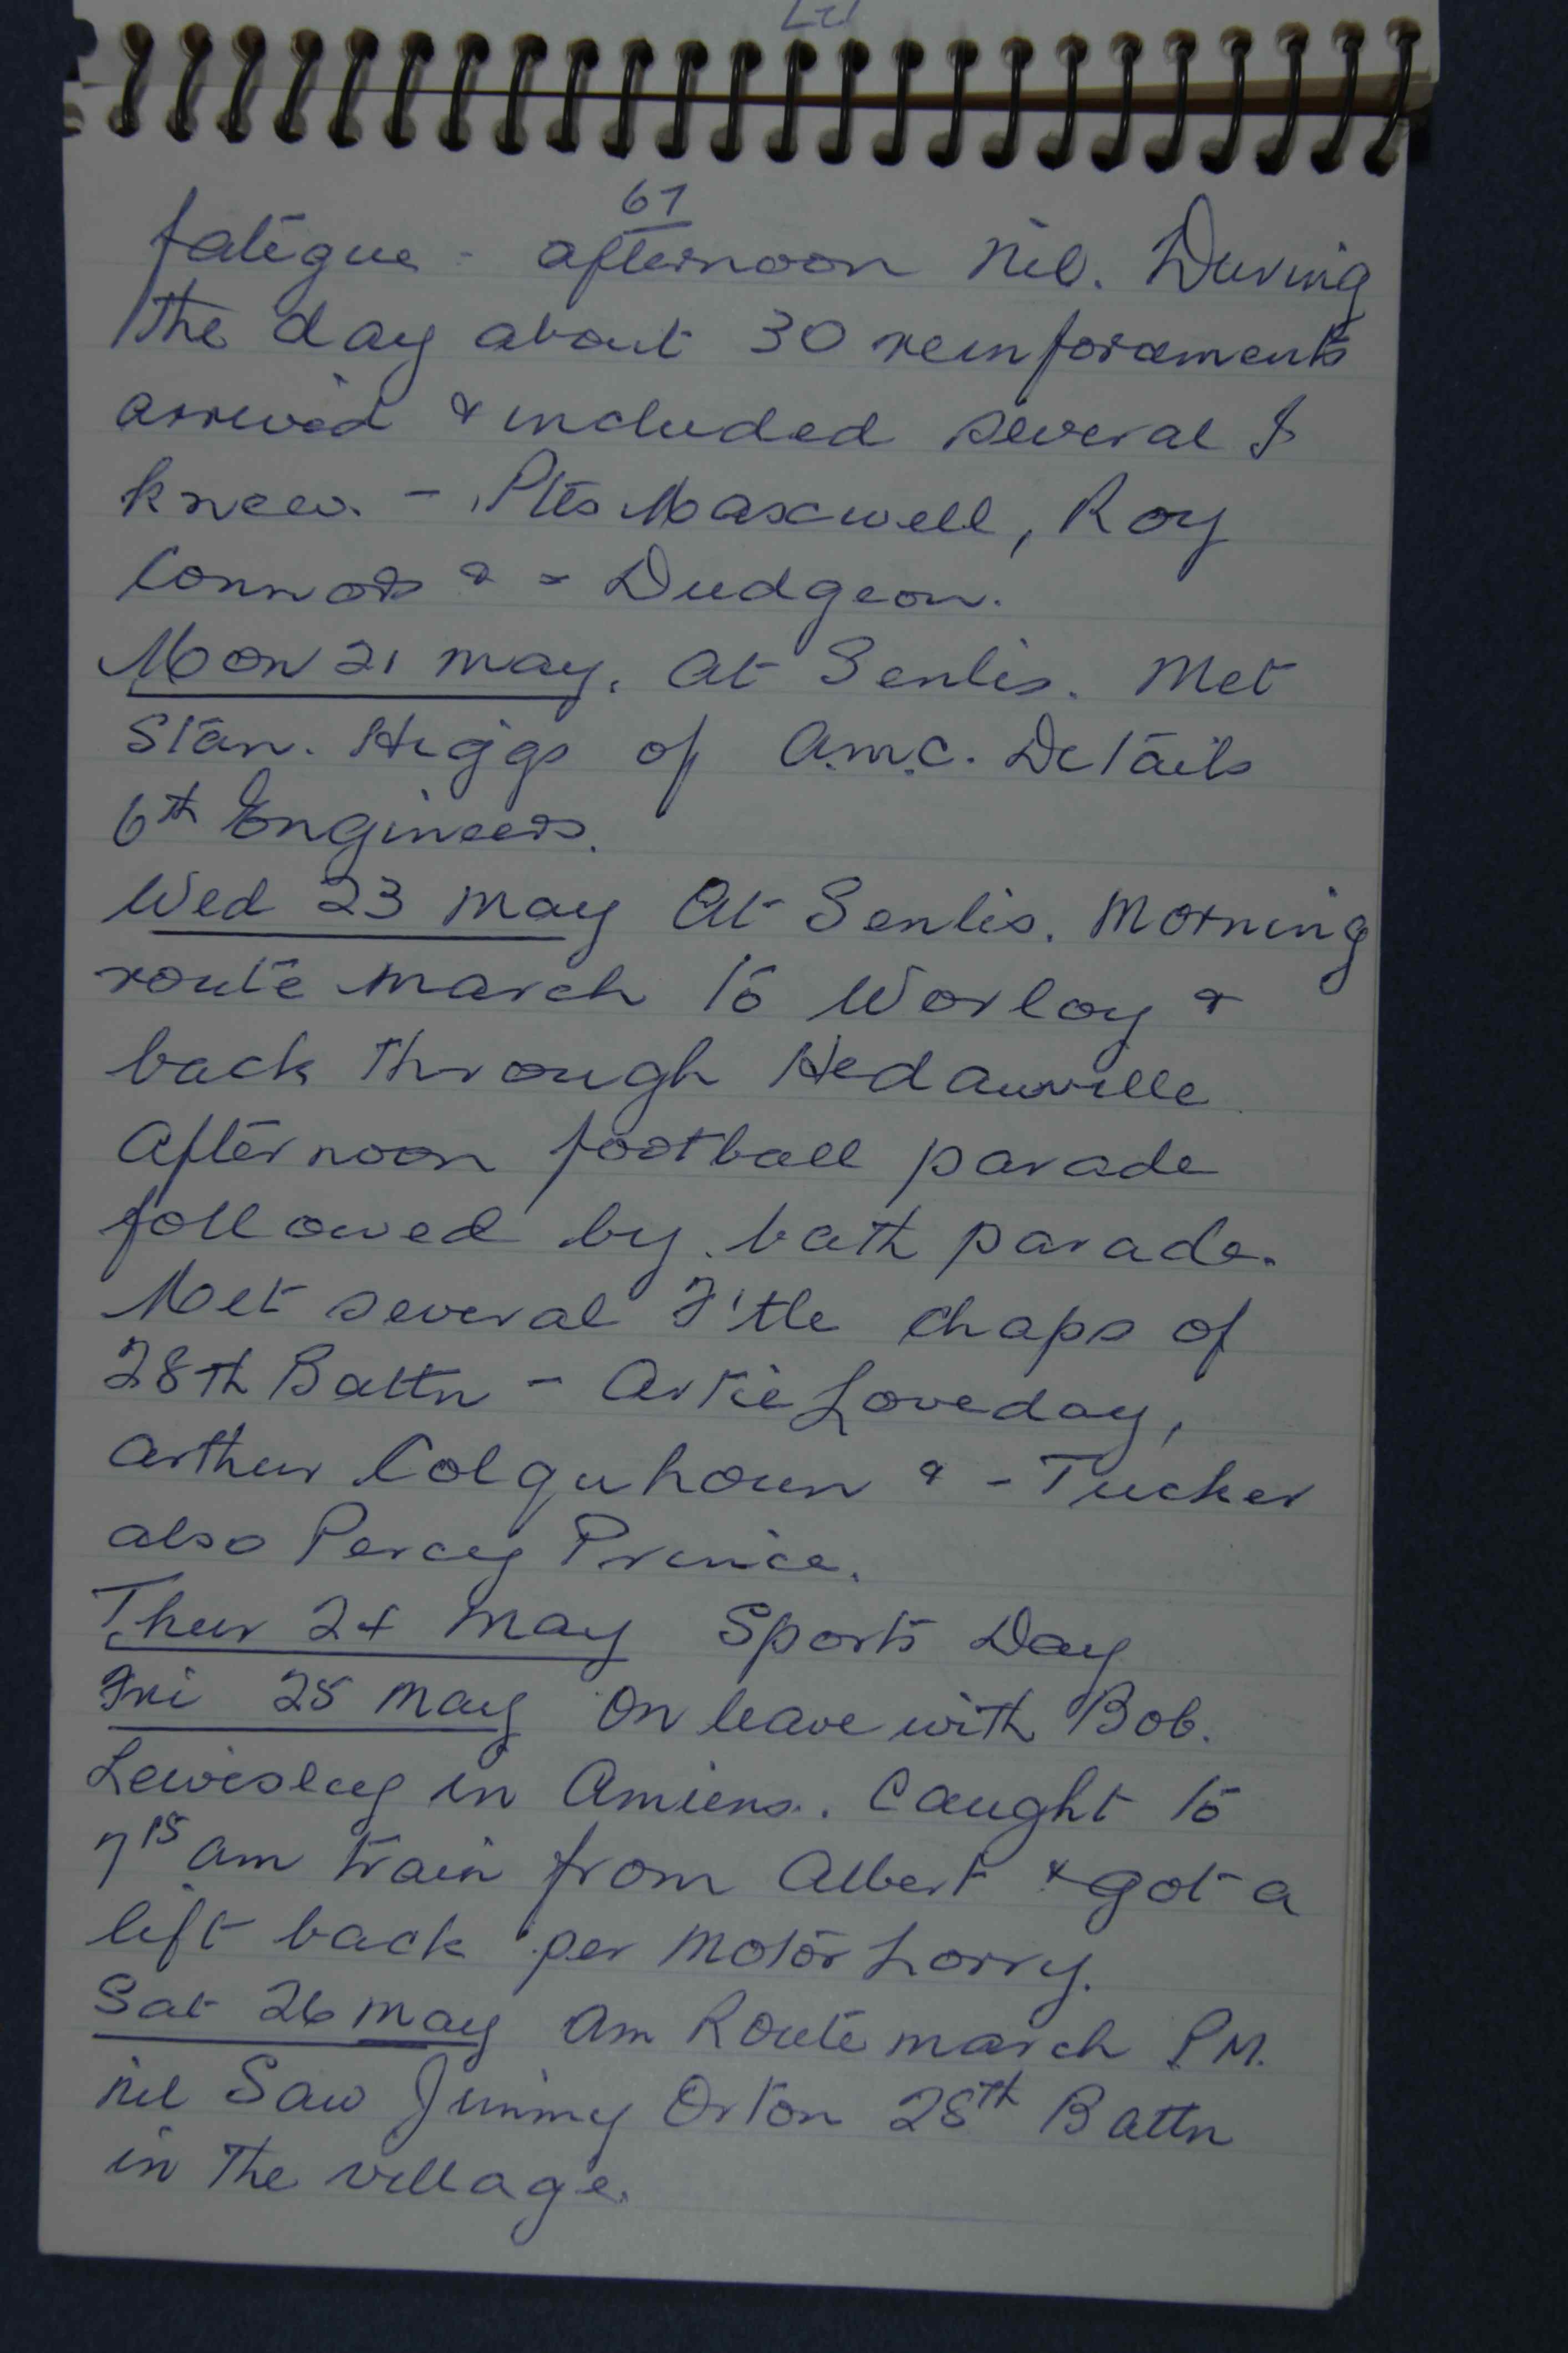 67
fatigue - afternoon nil. During
the day about 30 reinforcements
arrived & included several I
knew. - Ptes Maxwell, Roy
Connors & - Dudgeon.
Mon 21 may. at Senlis. Met
Stan. Higgs of A.m.C. Details
6th Engineers.
Wed 23 may At Senlis. Morning
route march to Warloy &
back through Hedauville
Afternoon football parade
followed by bath parade.
Met several F'tle chaps of
28th Battn - Artie Loveday,
Arthur Colquhoun & - Tucker
also Percy Prince.
Thur 24 May Sports Day
Fri 25 May On leave with Bob.
in Amiens. Caught to
7 15 am train from Albert & got a
lift back per Motor Lorry.
Sat 26 may am Route march P.M.
nil Saw Jimmy Orton 28th Battn
in the village.